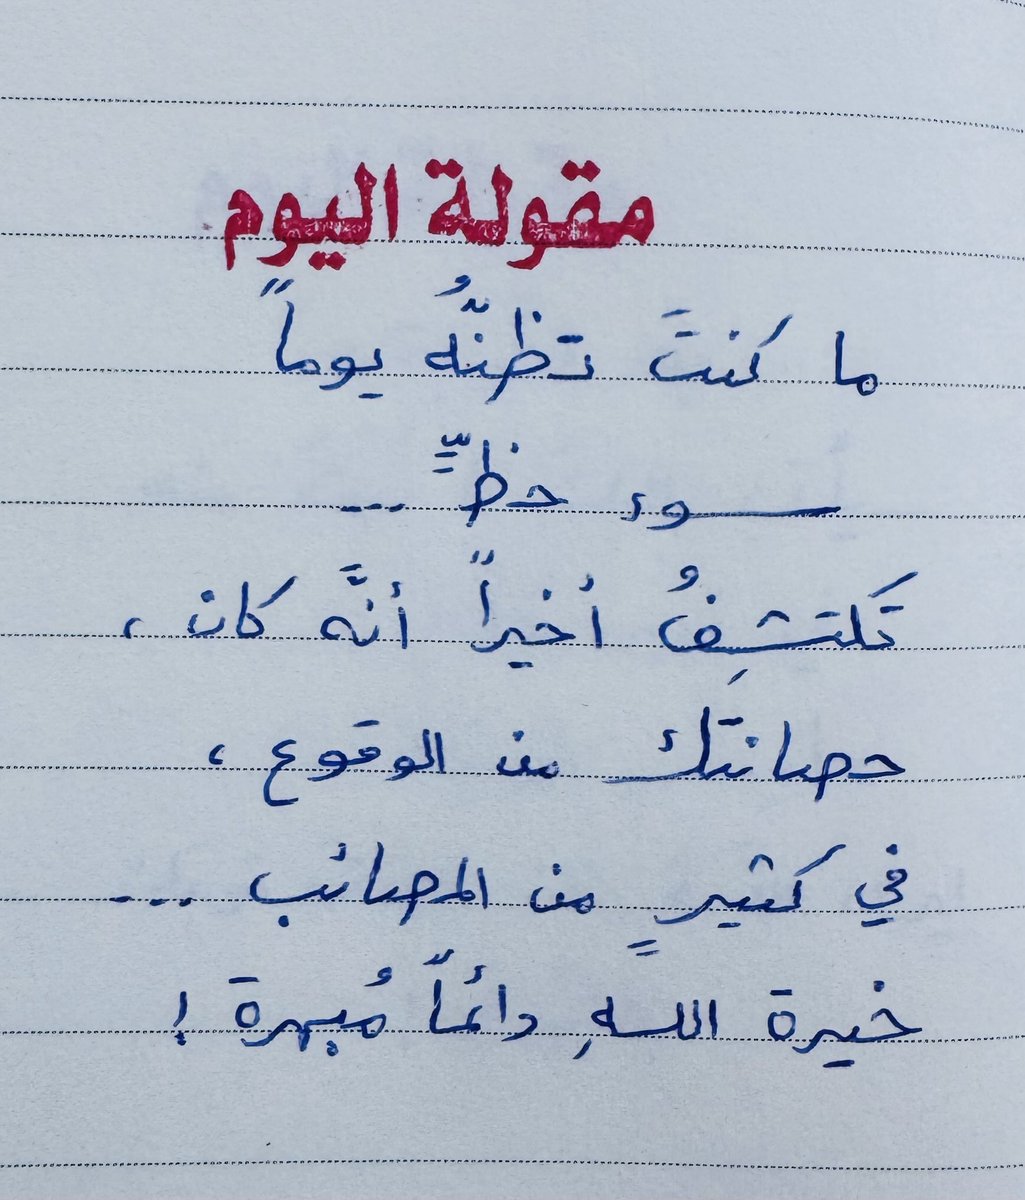 مقولة اليوم
ما كنتَ تظنّهُ يوماً
سوء حظٍّ ...
تكتشِفُ أخيراً أنَّه كان ،
حصانتك من الوقوع ،
في كثيرٍ من المصائب ...
خيرة اللهِ دائماً مُبهرة !